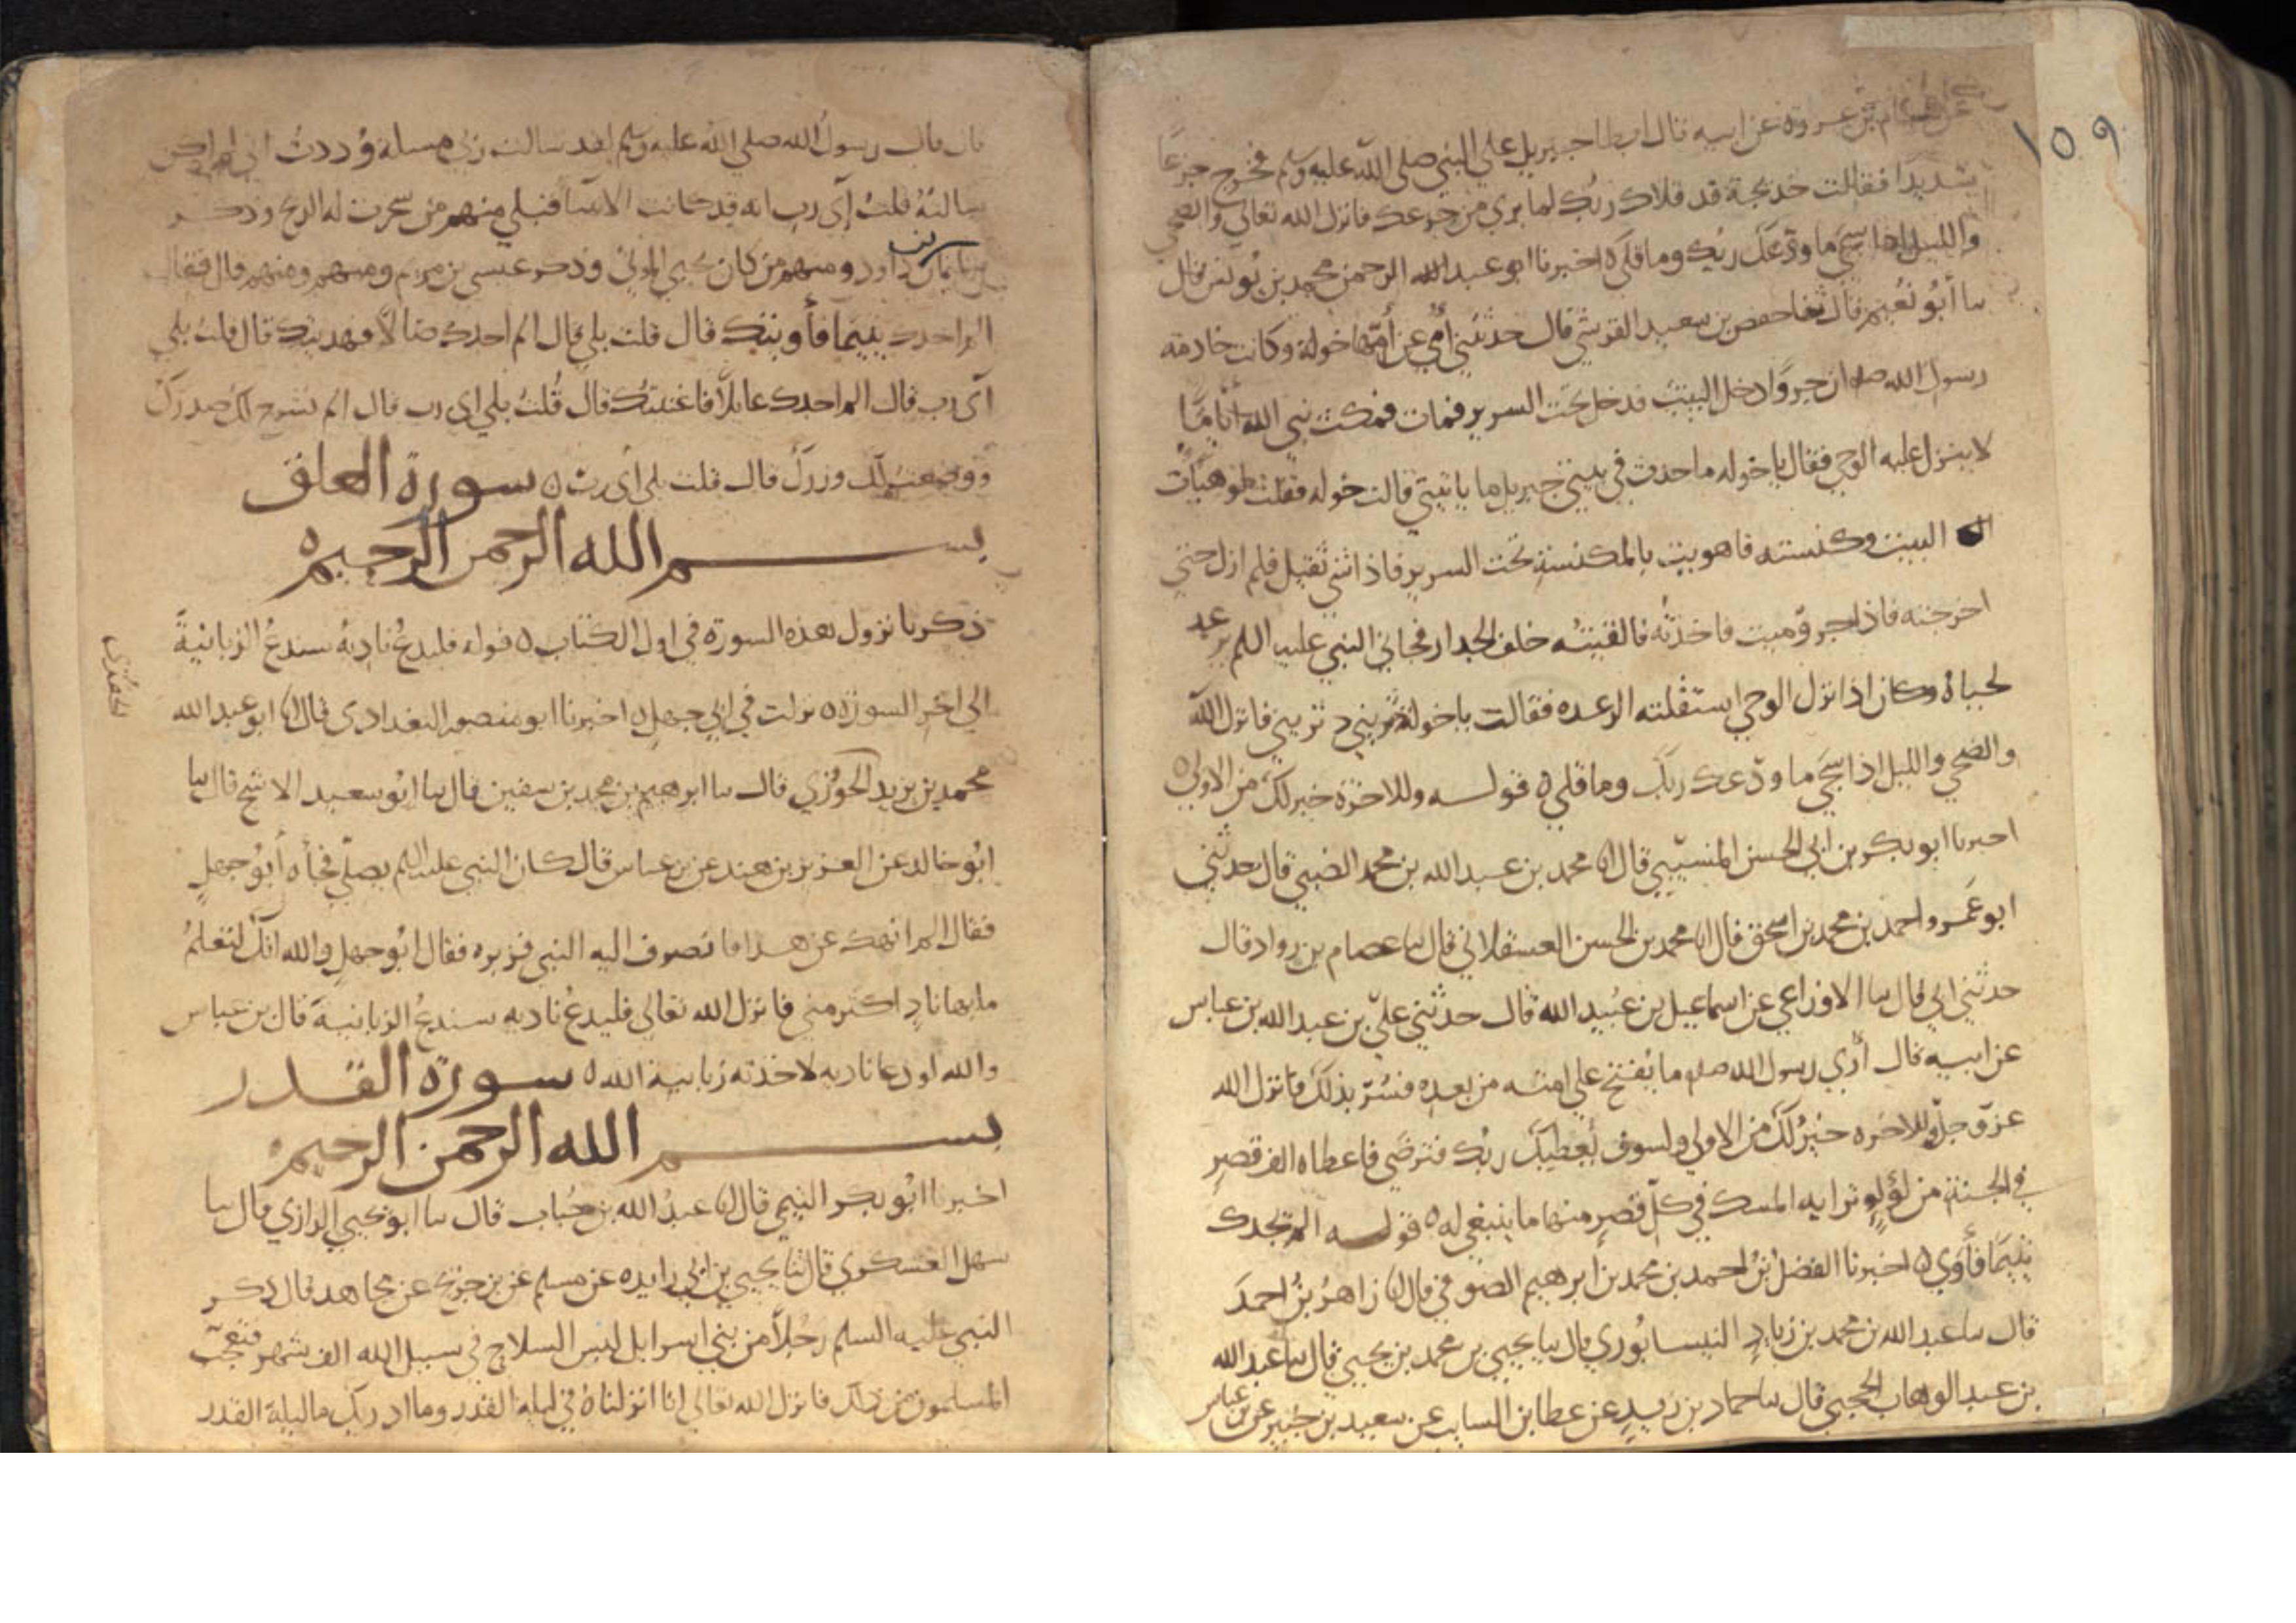 ١٥٩
عن هشام بن عروة عن ابيه قال ابطا جبريل على النبي صلى الله عليه وسلم فخرج جزعًا
شديدًا فقالت خديجة قد قلاك ربك لما يرى من جزعك فانزل الله تعالى والضحى
والليل اذا سجى ما ودعك ربك وما قلى ه اخبرنا ابو عبد الرحمن محمد بن يونس قال
سا أبو نعيم قال ثنا حفص بن سعيد القرشي قال حدثتني أمي عن أمها خولة وكانت خادمة
رسول الله صلم ان جروًا دخل البيت فدخل تحت السرير فمات فمكث نبي الله أيامًا
لا ينزل عليه الوحي فقال يا خوله ما حدث في بيتي جبريل ما ياتيني قالت خوله فقلت لو هيأت
البيت وكنسته فاهويت بالمكنسة تحت السرير فاذا شي ثقيل فلم ازل حتى
اخرجته فاذا جرو ميت فاخذته فالقيته خلف الجدار فجا النبي عليه السلم ترعد
لحياه وكان اذا نزل الوحي استقبلته الرعده فقالت يا خولة دثريني فانزل الله
والضحى والليل اذا سجى ما ودعك ربك وما قلى ه قولـه وللاخرة خير لك من الاولى ه
اخبرنا ابو بكر بن ابي الحسن المسيبي قال انا محمد بن عبد الله بن محمد الضبي قال حدثني
ابو عمرو احمد بن محمد بن اسحق قال انا محمد بن الحسن العسقلاني قال سا عصام بن رواد قال
حدثني ابي قال سا الاوزاعي عن اسماعيل بن عبيد الله قال حدثني علي بن عبد الله بن عباس
عن ابيه قال أُري رسول الله صلم ما يفتح على امته من بعده فسُرّ بذلك فانزل الله
عز وجل وللاخره خير لك من الاولى ولسوف يعطيك ربك فترضى فاعطاه الف قصر
في الجنة من لؤلؤٍ ترابه المسك في كل قصر منها ما ينبغي له ه قولـه الم يجدك
يتيمًا فأوى ه اخبرنا الفضل بن احمد بن محمد بن ابرهيم الصوفي قال انا زاهر بن احمد
قال سا عبد الله بن محمد بن زياد النيسابوري قال سا يحيى بن محمد بن يحيى قال سا عبد الله
بن عبد الوهاب الحجبي قال سا حماد بن زيد عن عطا بن السايب عن سعيد بن جبير عن بن عباس
قال قال رسول الله صلى الله عليه وسلم لقد سالت ربي مسلة وددت اني لم اكن
سالته قلت أي رب انه قد كانت الانبيا قبلي منهم من سخرت له الريح وذكر
سليمان بن داود ومنهم من كان يحيي الموتى وذكر عيسى بن مريم ومنهم ومنهم قال فقال
الم اجدك يتيمًا فأويتك قال قلت بلى قال الم اجدك ضالاً فهديتك قال قلت بلى
أي رب قال الم اجدك عايلاً فاغنيتك قال قُلتُ بلى اى رب قال الم نشرح لك صدرك
ووضعت عنك وزرك قال قلت بلى أى رب ه سورة العلق
بسم الله الرحمن الرحيم ه
ذكرنا نزول هذه السورة في اول الكتاب ه قوله فليدعُ ناديه سندعُ الزبانيةَ
الى اخر السورة ه نزلت في ابي جهل ه اخبرنا ابو منصور البغدادى قال انا ابو عبد الله
محمد بن يزيد الخوزي قال سا ابرهيم بن محمد بن سفين قال سا ابو سعيد الاشج قال سا
ابُو خالد عن العزيز بن هند عن بن عباس قال كان النبي عليه السلم يصلي فجاه أبُو جهلٍ
فقال الم انهك عن هذا فانصرف اليه النبي فزبره فقال ابُو جهلٍ والله انك لتعلمُ
ما بها نادٍ اكثر مني فانزل الله تعالى فليدعُ ناديه سندعُ الزبانيةَ قال بن عباس
والله لو دعا ناديه لاخذته زبانية الله ه سورة القدر
بسم الله الرحمن الرحيم ه
اخبرنا ابُو بكر التيمي قال انا عبدُ الله بن حُباب قال سا ابو يحيى الرازي قال سا
سهل العسكري قال ثنا يحيى بن ابي زايده عن مسلم عن بن جريج عن مجاهد قال ذكر
النبي عليه السلم رجُلاً من بني اسرايل لبس السلاح في سبيل الله الف شهر فتعجب
المسلمون من ذلك فانزل الله تعالى انا انزلناه في ليلة القدر وما ادريك ما ليلة القدر